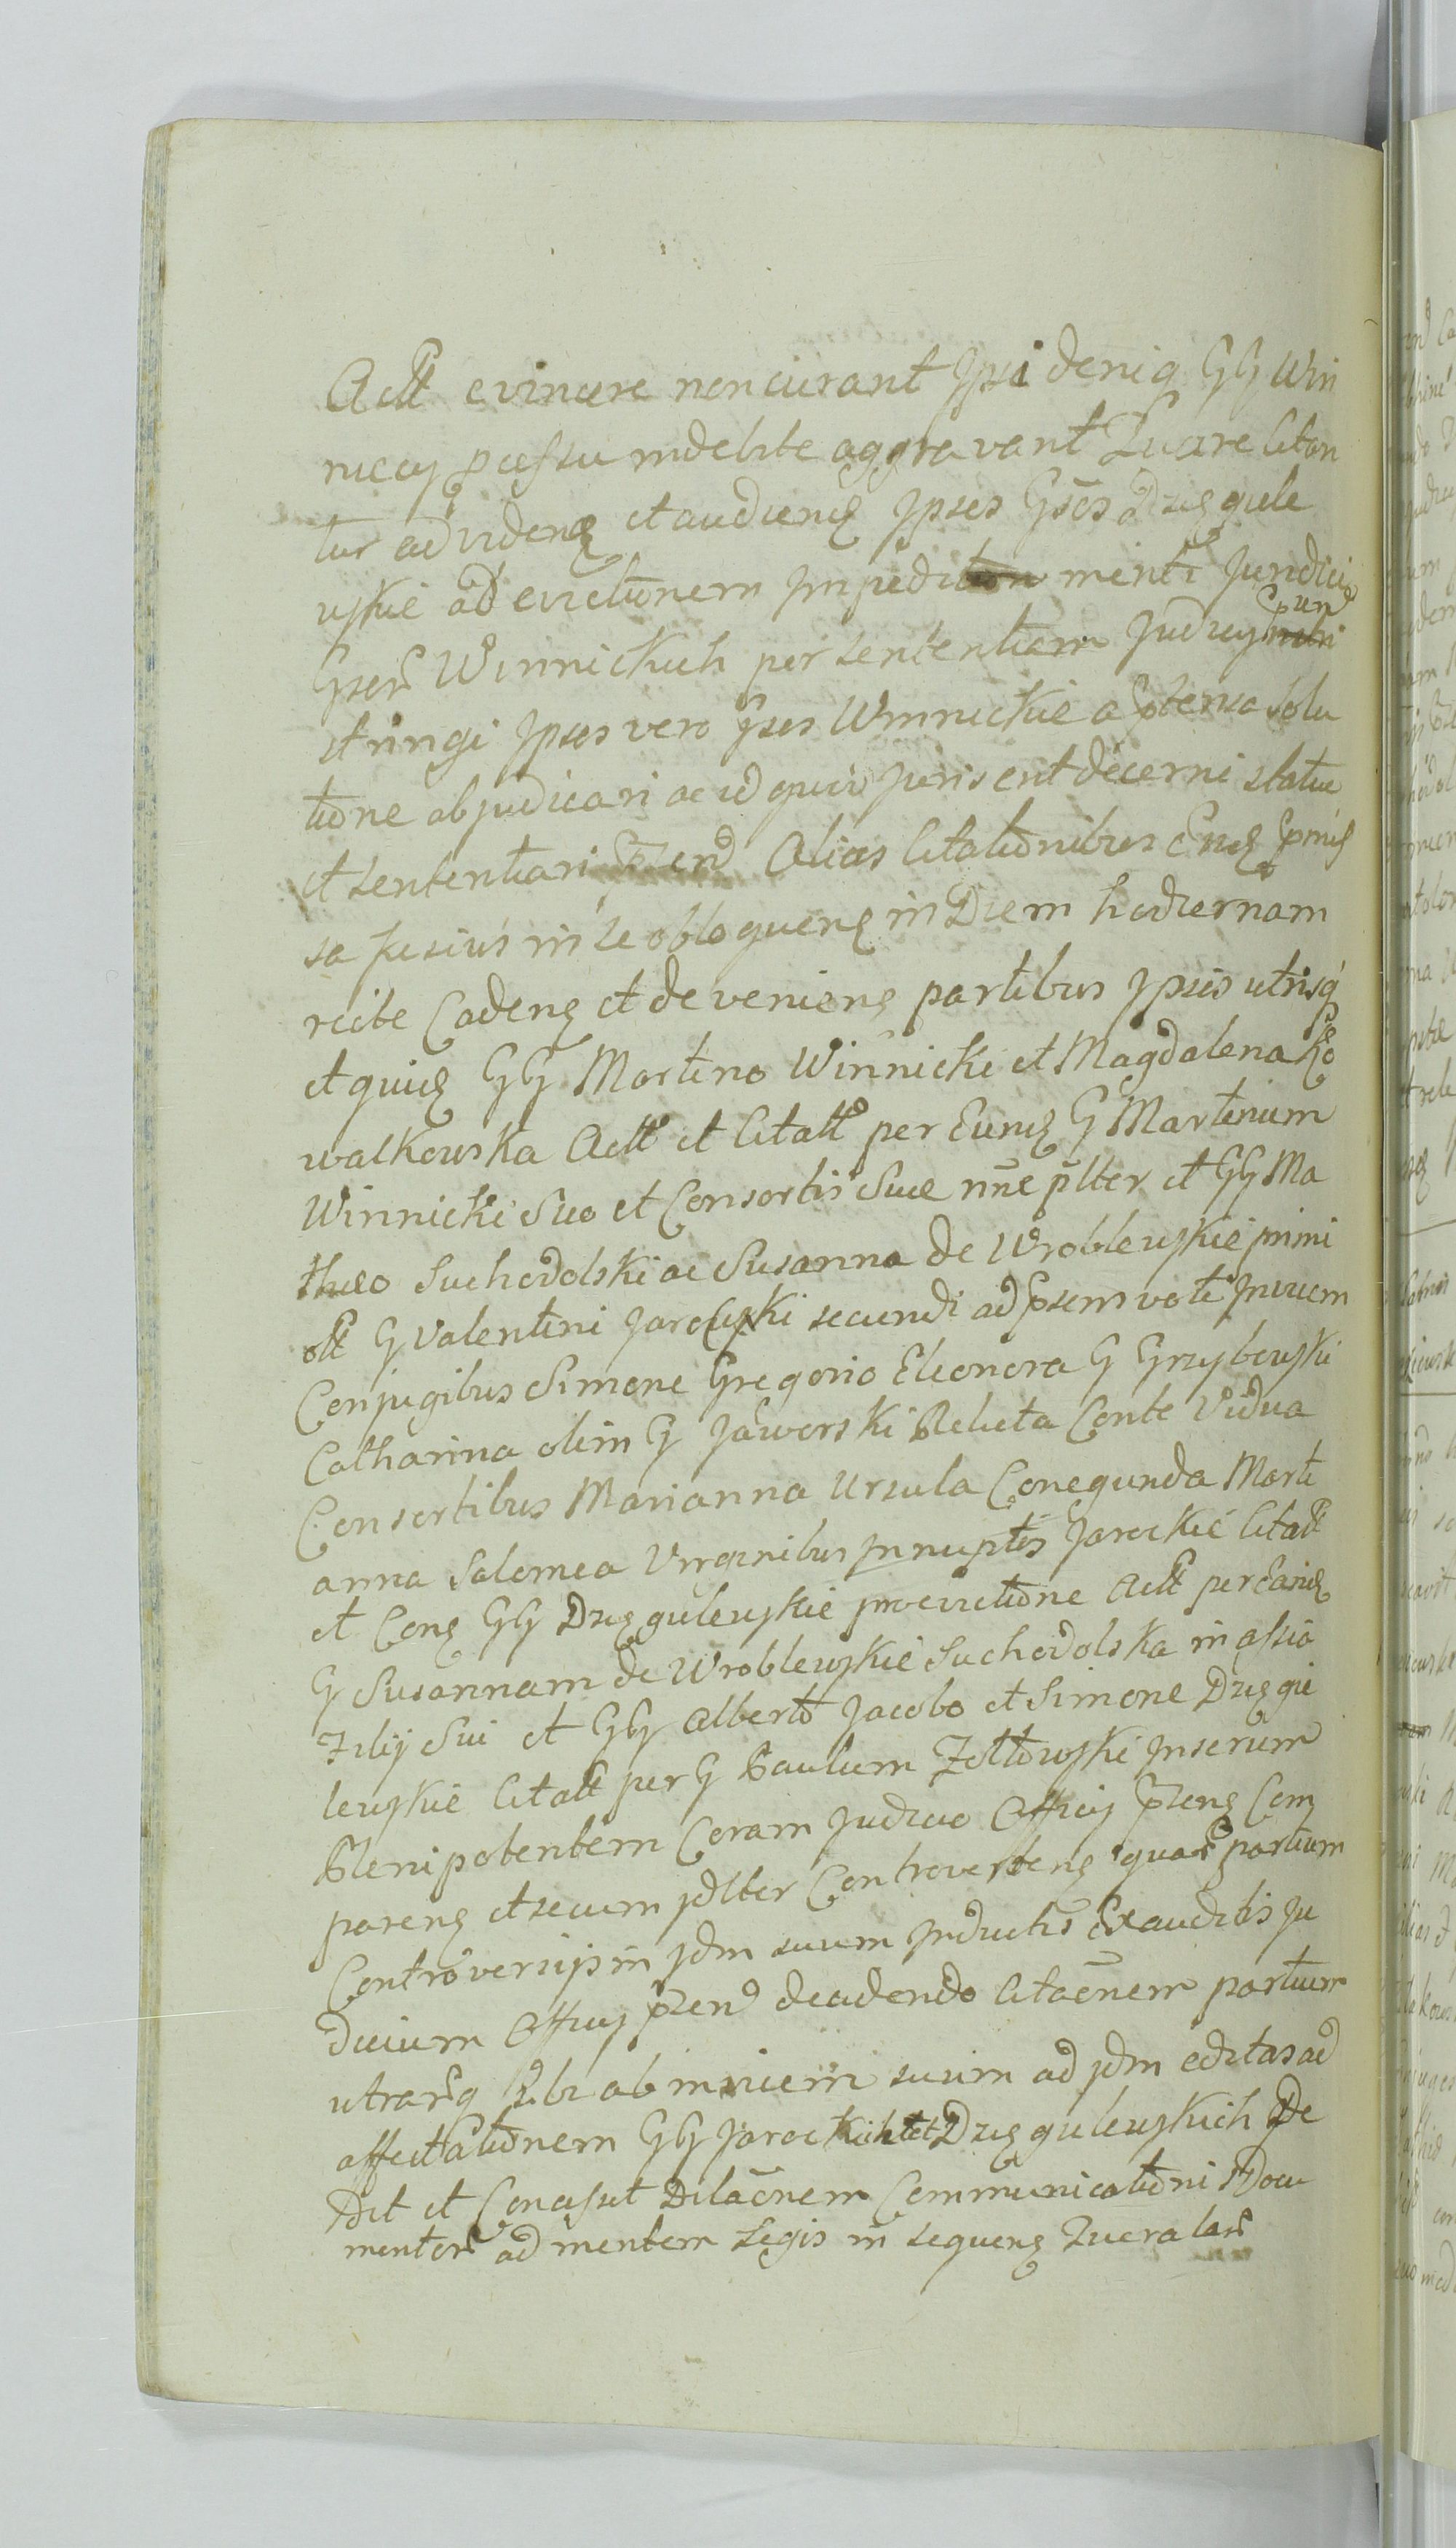 Actt evincere non curant Ipsi deniq GG Win
niccy pcessu indebite aggravant Quare Citan
tur ad videnq et audienq Ipsos Gsos Dzięgiele
wskie ad evictionem Impedi menti Juridici
Gser Winnickich per sententiam Judicy
stringi Ipsos vero Gsos Winnickie a solu
tione abjudicari ac id quid Juris erit decerni statui
et sententiari Alias Citationibus
sa fusius in se obloquenq in Diem hodiernam
rite Cadenq et devenienq partibus Ipsis utrisq
et quidq GG Martino Winnicki et Magdalena Ko
walkowska Actt et Citatt per Eunq G Martinum
Winnicki Suo et Consortis Suae nne plter et GG Ma
thaeo Suchodolski ac Susanna de Wroblewskie primi
ott G Valentini Jarocki secundi ad psens voti Invicem
Conjugibus Simone Gregorio Eleonora G Grzybowski
Catharina olim G Jaworski Relicta Conte Vidua
Consortibus Marianna Ursula Conegunda Marti
anna Salomea Virginibus Innuptis Jarockie Citatt
et Conq GG Dzięgielewskie pro evictione Actt per Eanq
G Susannam de Wroblewskie Suchodolska in assia
Filij Sui et GG Alberto Jacobo et Simone Dzięgie
lewskie Citatt per G Paulum Zołtowski Inserum
Plenipotentem Coram Judicio Officij pzenq Com
parenq et secum Jdlter Controvertenq quar partium
Controversijs in Jdm suum Inductis Exauditis Ju
dicium Officij pzen decidendo Citaonem partium
utrarq sibi ab invicem suum ad Jdm editas ad
affectationem GG Jarockich et Dzięgielewskich De
dit et Concessit Dilaonem Communicationi Docu
mentor ad mentem Legis in sequenq Querelar